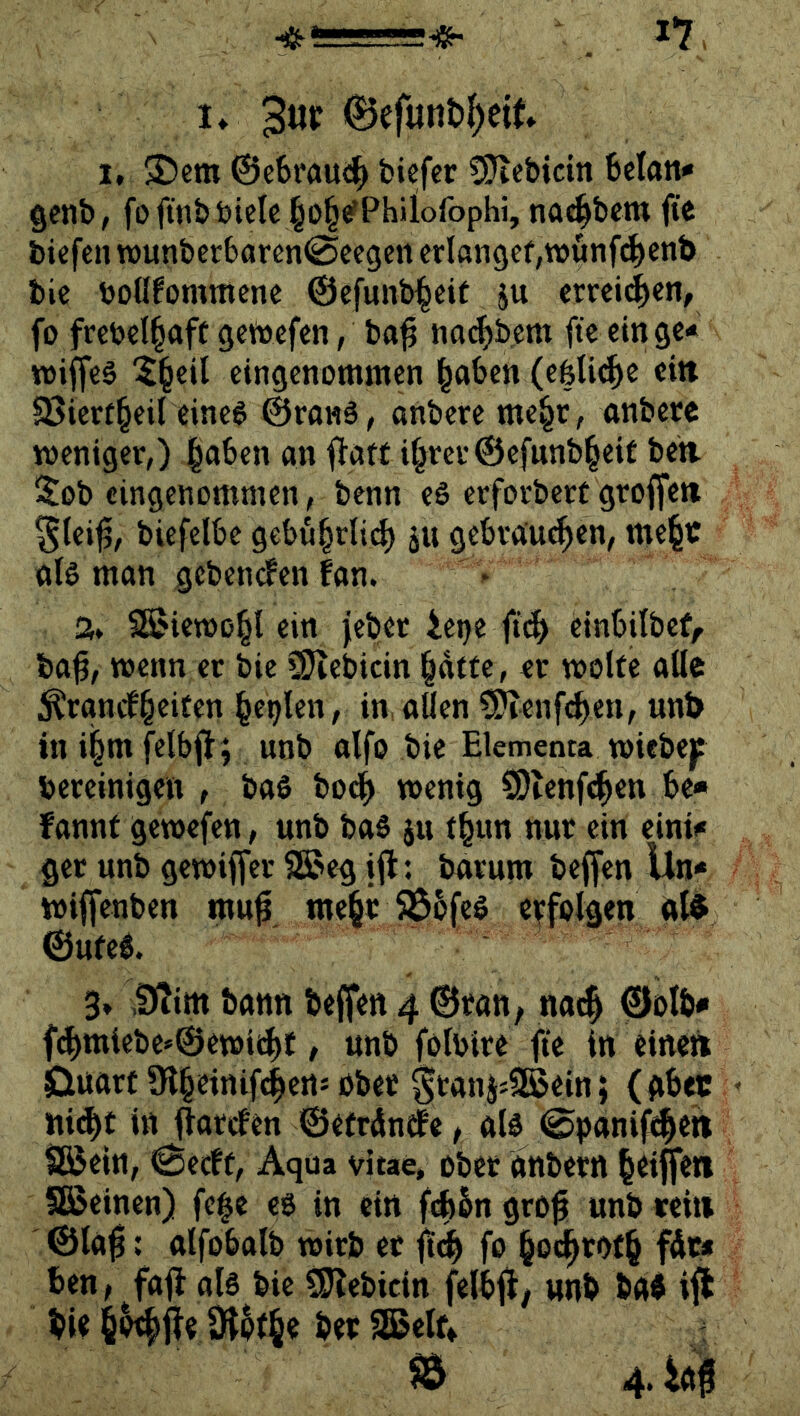 17
1. Zur Gesundheit.
1. Dem Gebrauch dieser Medicin belan-
gend, so sind viele hohe Philosophi, nachdem sie
diesen wunderbaren Seegen erlanget, wünschend
die vollkommene Gesundheit zu erreichen,
so frevelhaft gewesen, daß nachdem sie ein ge-
wisses Theil eingenommen haben (etzliche ein
Viertheil eines Grans, andere mehr, andere
weniger,) haben an statt ihrer Gesundheit den
Tod eingenommen, denn es erfordert grossen
Fleiß, dieselbe gebührlich zu gebrauchen, mehr
als man gedencken kan.
2. Wiewohl ein jeder Leye sich einbildet,
daß, wenn er die Medicin hätte, er wolte alle
Kranckheiten heylen, in allen Menschen, und
in ihm selbst; und also die Elementa wieder
vereinigen, das doch wenig Menschen be-
kannt gewesen, und das zu thun nur ein eini-
ger und gewisser Weg ist: darum dessen Un-
wissenden muß mehr Böses erfolgen als
Gutes.
3. Nim dann dessen 4 Gran, nach Gold-
schmiede-Gewicht, und solvire sie in einen
Quart Rheinischen- oder Franz-Wein; (aber
nicht in starcken Geträncke, als Spanischen
Wein, Seckt, Aqua vitae, oder andern heissen
Weinen) setze es in ein schön groß und rein
Glaß: alsobald wird er sich so hochroth fär-
ben, fast als die Medicin selbst, und das ist
die höchste Röthe der Welt.
B 4. Laß